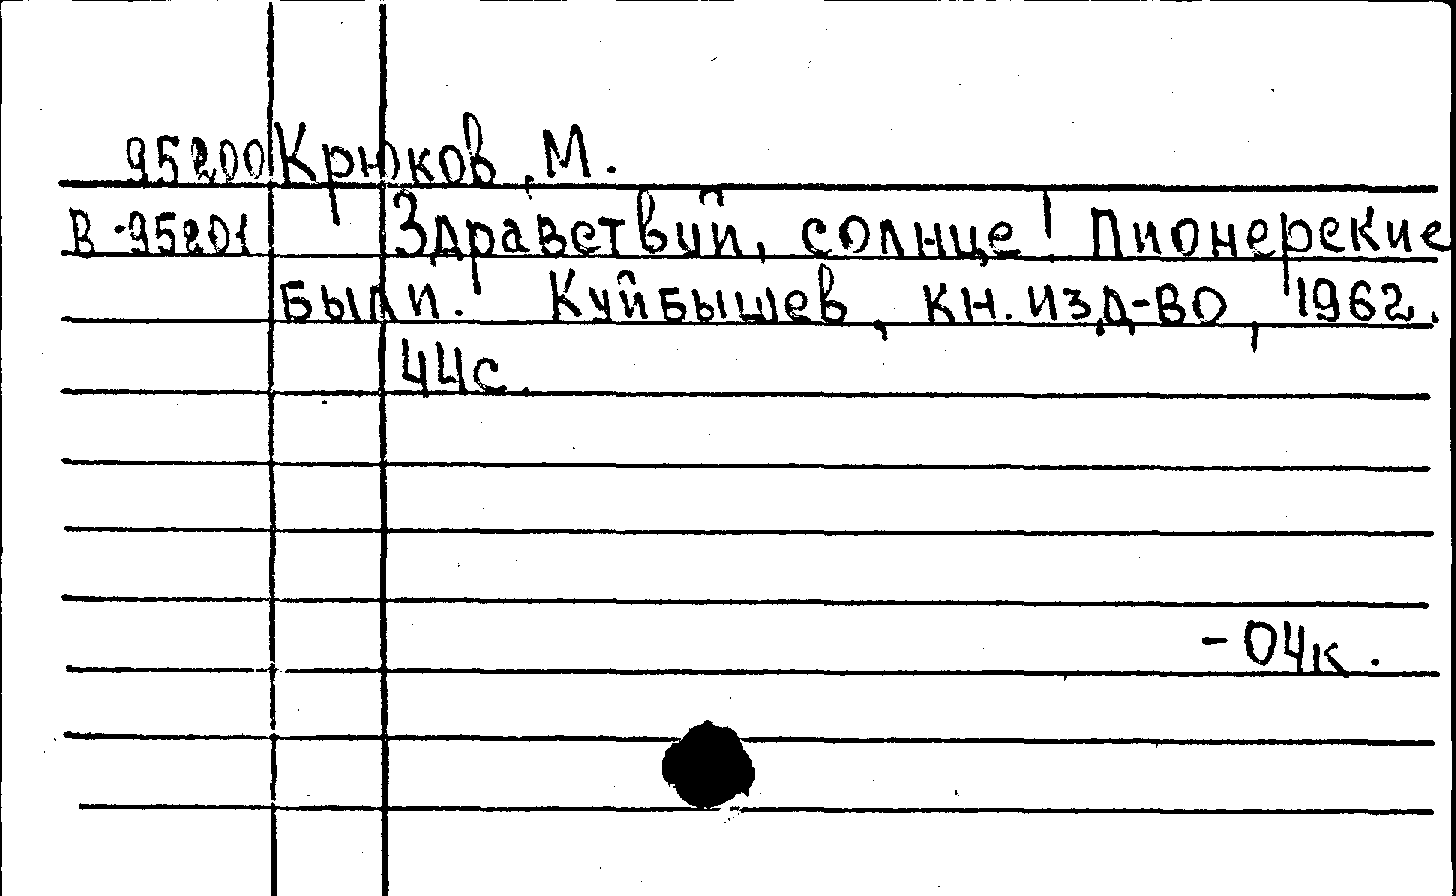 95200 Крюков, М.
В-95201 Здравствуй, солнце! Пионерские
были. Куйбышев, кн. изд-во, 1962.
44с.
-04к.